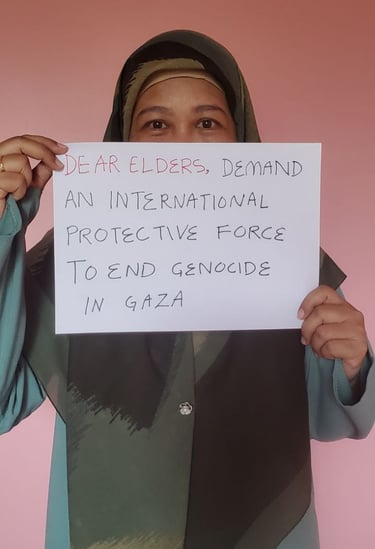 DEAR ELDERS, DEMAND
AN INTERNATIONAL
PROTECTIVE FORCE
TO END GENOCIDE
IN GAZA